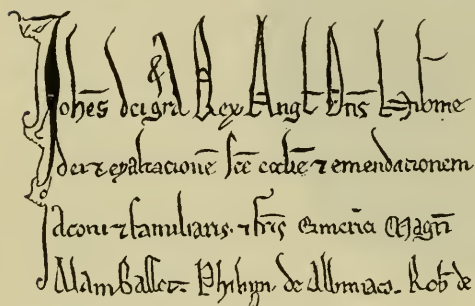 Johēs dei grā Rex Angł Dn̄s Hibnie
dei & exaltacionē scē ecctīē ⁊ emendationem
pconi ⁊ familiaris ⁊ frīs Emerici Magrī
Alam Basset Philipp de Albiniaco Rob de